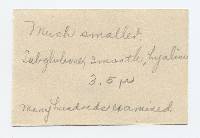 Much smaller.
Subglobose, smooth, hyaline
3.5 µ
Many hundreds examined.